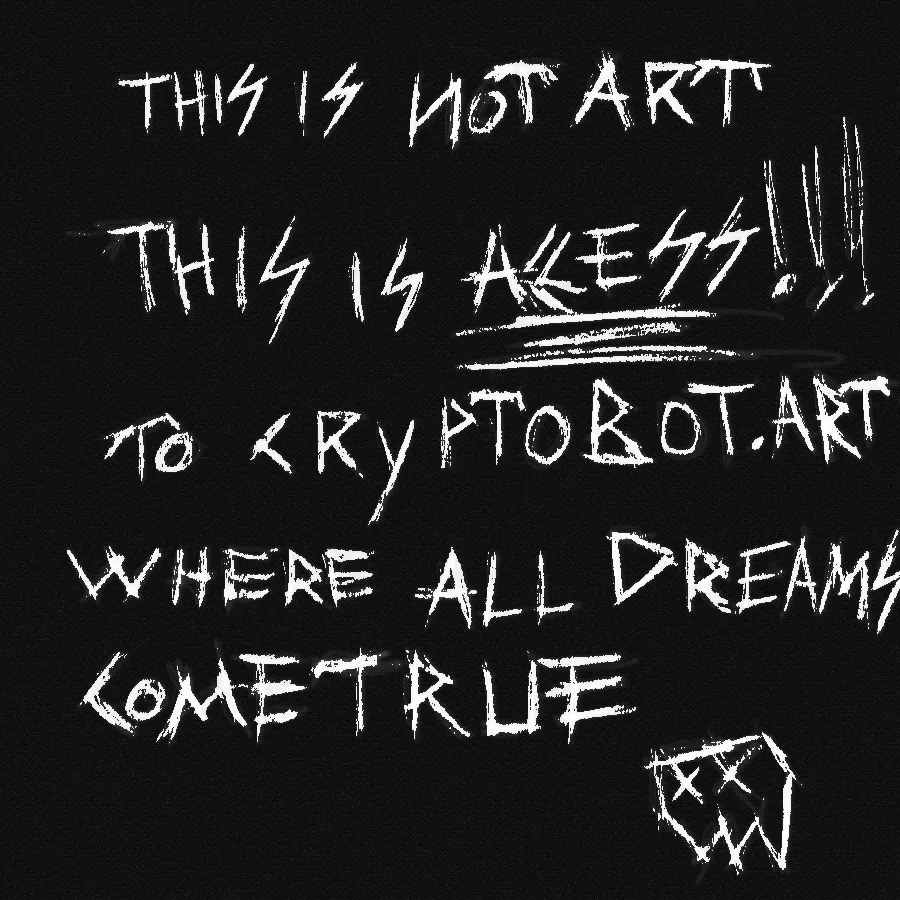 THIS IS NOT ART
THIS IS ACESS!!!
TO CRyPTOBOT.ART
WHERE ALL DREAMS
COME TRUE